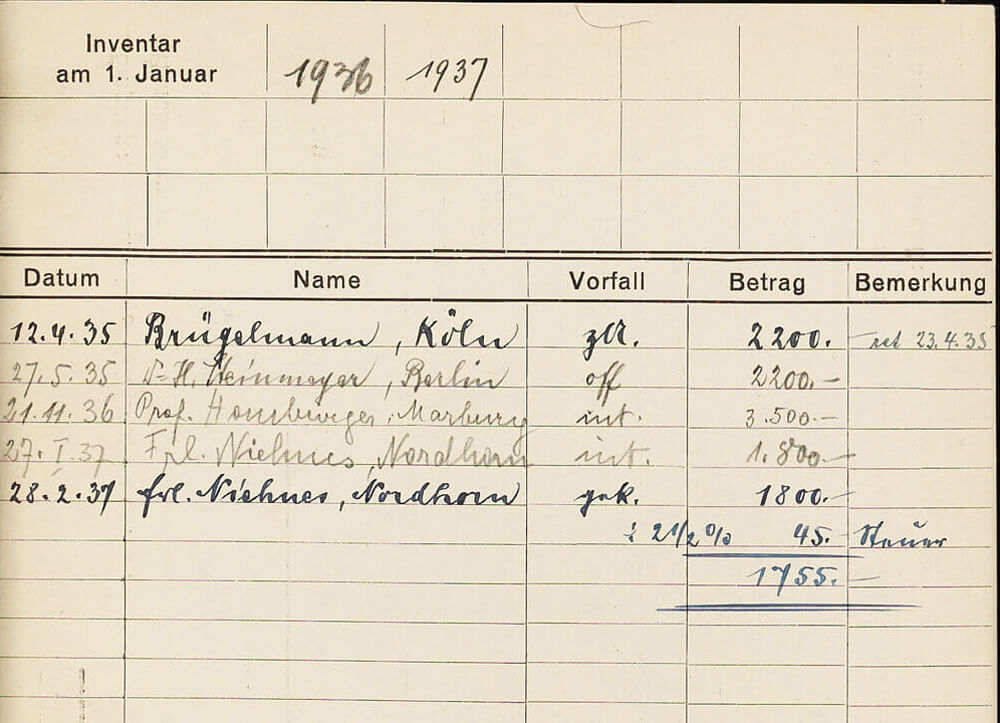 Inventar
am 1. Januar 1936 1937
Datum Name Vorfall Betrag Bemerkung
12.4.35 Brügelmann, Köln z.A. 2200.– ret 23.4.35
27.5.35 H. Weinmeyer, Berlin off 2200.–
21.11.36 Prof. Homburger, Marburg int. 3.500.–
27.I.37 Frl. Niehues, Nordhorn int. 1.800.–
28.2.37 Frl. Niehues, Nordhorn gek. 1800.–
2 1/2 % 45.– Steuer
1755.–